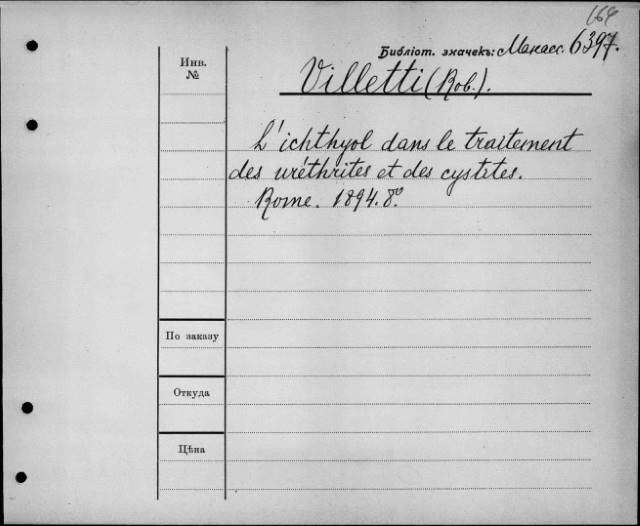 164
Библіот. значекъ: Макасс. 6397.
Инв.
№
Villetti (Rob.).
L'ichthyol dans le traitement
des uréthrites et des cystites.
Rome. 1894. 8º.
По заказу
Откуда
Цѣна